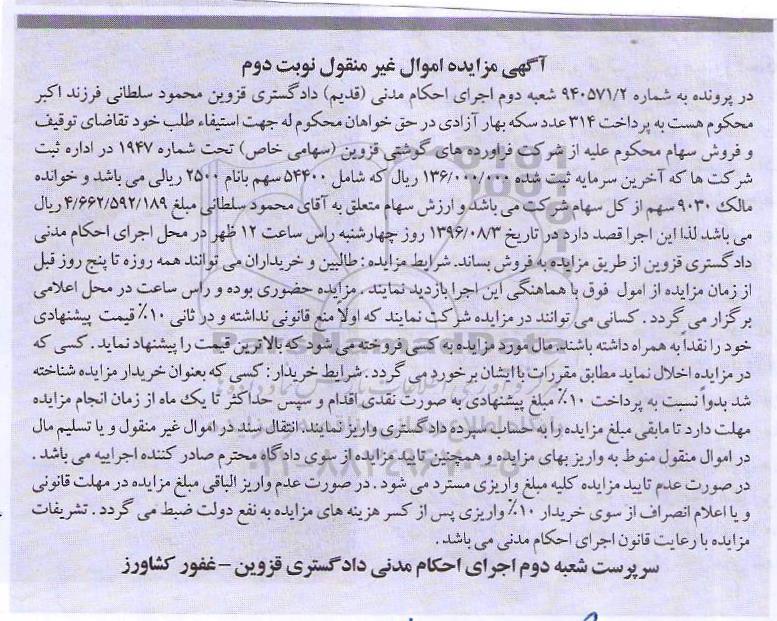 آگهی مزایده اموال غیر منقول نوبت دوم
در پرونده به شماره ۹۴۰۵۷۱/۲ شعبه دوم اجرای احکام مدنی (قدیم) دادگستری قزوین محمود سلطانی فرزند اکبر
محکوم هست به پرداخت ۳۱۴ عدد سکه بهار آزادی در حق خواهان محکوم له جهت استیفاء طلب خود تقاضای توقیف
و فروش سهام محکوم علیه از شرکت فراورده های گوشتی قزوین (سهامی خاص) تحت شماره ۱۹۴۷ در اداره ثبت
شرکت ها که آخرین سرمایه ثبت شده ۱۳۶/۰۰۰/۰۰۰ ریال که شامل ۵۴۴۰۰ سهم بانام ۲۵۰۰ ریالی می باشد و خوانده
مالک ۹۰۳۰ سهم از کل سهام شرکت می باشد و ارزش سهام متعلق به آقای محمود سلطانی مبلغ ۴/۶۶۲/۵۹۲/۱۸۹ ریال
می باشد لذا این اجرا قصد دارد در تاریخ ۱۳۹۶/۰۸/۳ روز چهارشنبه راس ساعت ۱۲ ظهر در محل اجرای احکام مدنی
دادگستری قزوین از طریق مزایده به فروش بساند. شرایط مزایده : طالبین و خریداران می توانند همه روزه تا پنج روز قبل
از زمان مزایده از امول فوق با هماهنگی این اجرا بازدید نمایند . مزایده حضوری بوده و راس ساعت در محل اعلامی
برگزار می گردد . کسانی می توانند در مزایده شرکت نمایند که اولاً منع قانونی نداشته و در ثانی ۱۰٪ قیمت پیشنهادی
خود را نقداً به همراه داشته باشند. مال مورد مزایده به کسی فروخته می شود که بالاترین قیمت را پیشنهاد نماید . کسی که
در مزایده اخلال نماید مطابق مقررات با ایشان برخورد می گردد . شرایط خریدار : کسی که بعنوان خریدار مزایده شناخته
شد بدواً نسبت به پرداخت ۱۰٪ مبلغ پیشنهادی به صورت نقدی اقدام و سپس حداکثر تا یک ماه از زمان انجام مزایده
مهلت دارد تا مابقی مبلغ مزایده را به حساب سپرده دادگستری واریز نمایند. انتقال سند در اموال غیر منقول و یا تسلیم مال
در اموال منقول منوط به واریز بهای مزایده و همچنین تایید مزایده از سوی دادگاه محترم صادر کننده اجراییه می باشد .
در صورت عدم تایید مزایده کلیه مبلغ واریزی مسترد می شود . در صورت عدم واریز الباقی مبلغ مزایده در مهلت قانونی
و یا اعلام انصراف از سوی خریدار ۱۰٪ واریزی پس از کسر هزینه های مزایده به نفع دولت ضبط می گردد . تشریفات
مزایده با رعایت قانون اجرای احکام مدنی می باشد .
سرپرست شعبه دوم اجرای احکام مدنی دادگستری قزوین – غفور کشاورز
ParsNamadData